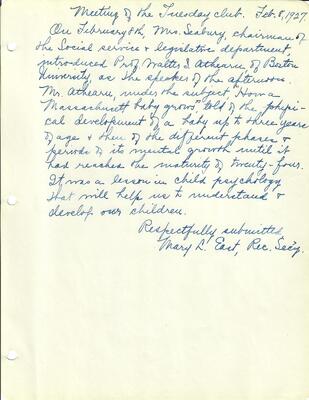 Meeting of the Tuesday club. Feb. 8, 1927.
On February 8th, Mrs. Seabury, chairman of
the Social service & legislative department,
introduced Prof. Walter S. Athearn of Boston
University, as the speaker of the afternoon.
Mr. Athearn, under the subject "How a
Massachusetts baby grows" told of the physi-
cal development of a baby up to three years
of age & then of the different phases &
periods of its mental growth until it
had reached the maturity of twenty-four.
It was a lesson in child psychology
that will help us to understand &
develop our children.
Respectfully submitted,
Mary L. East, Rec. Sec'y.